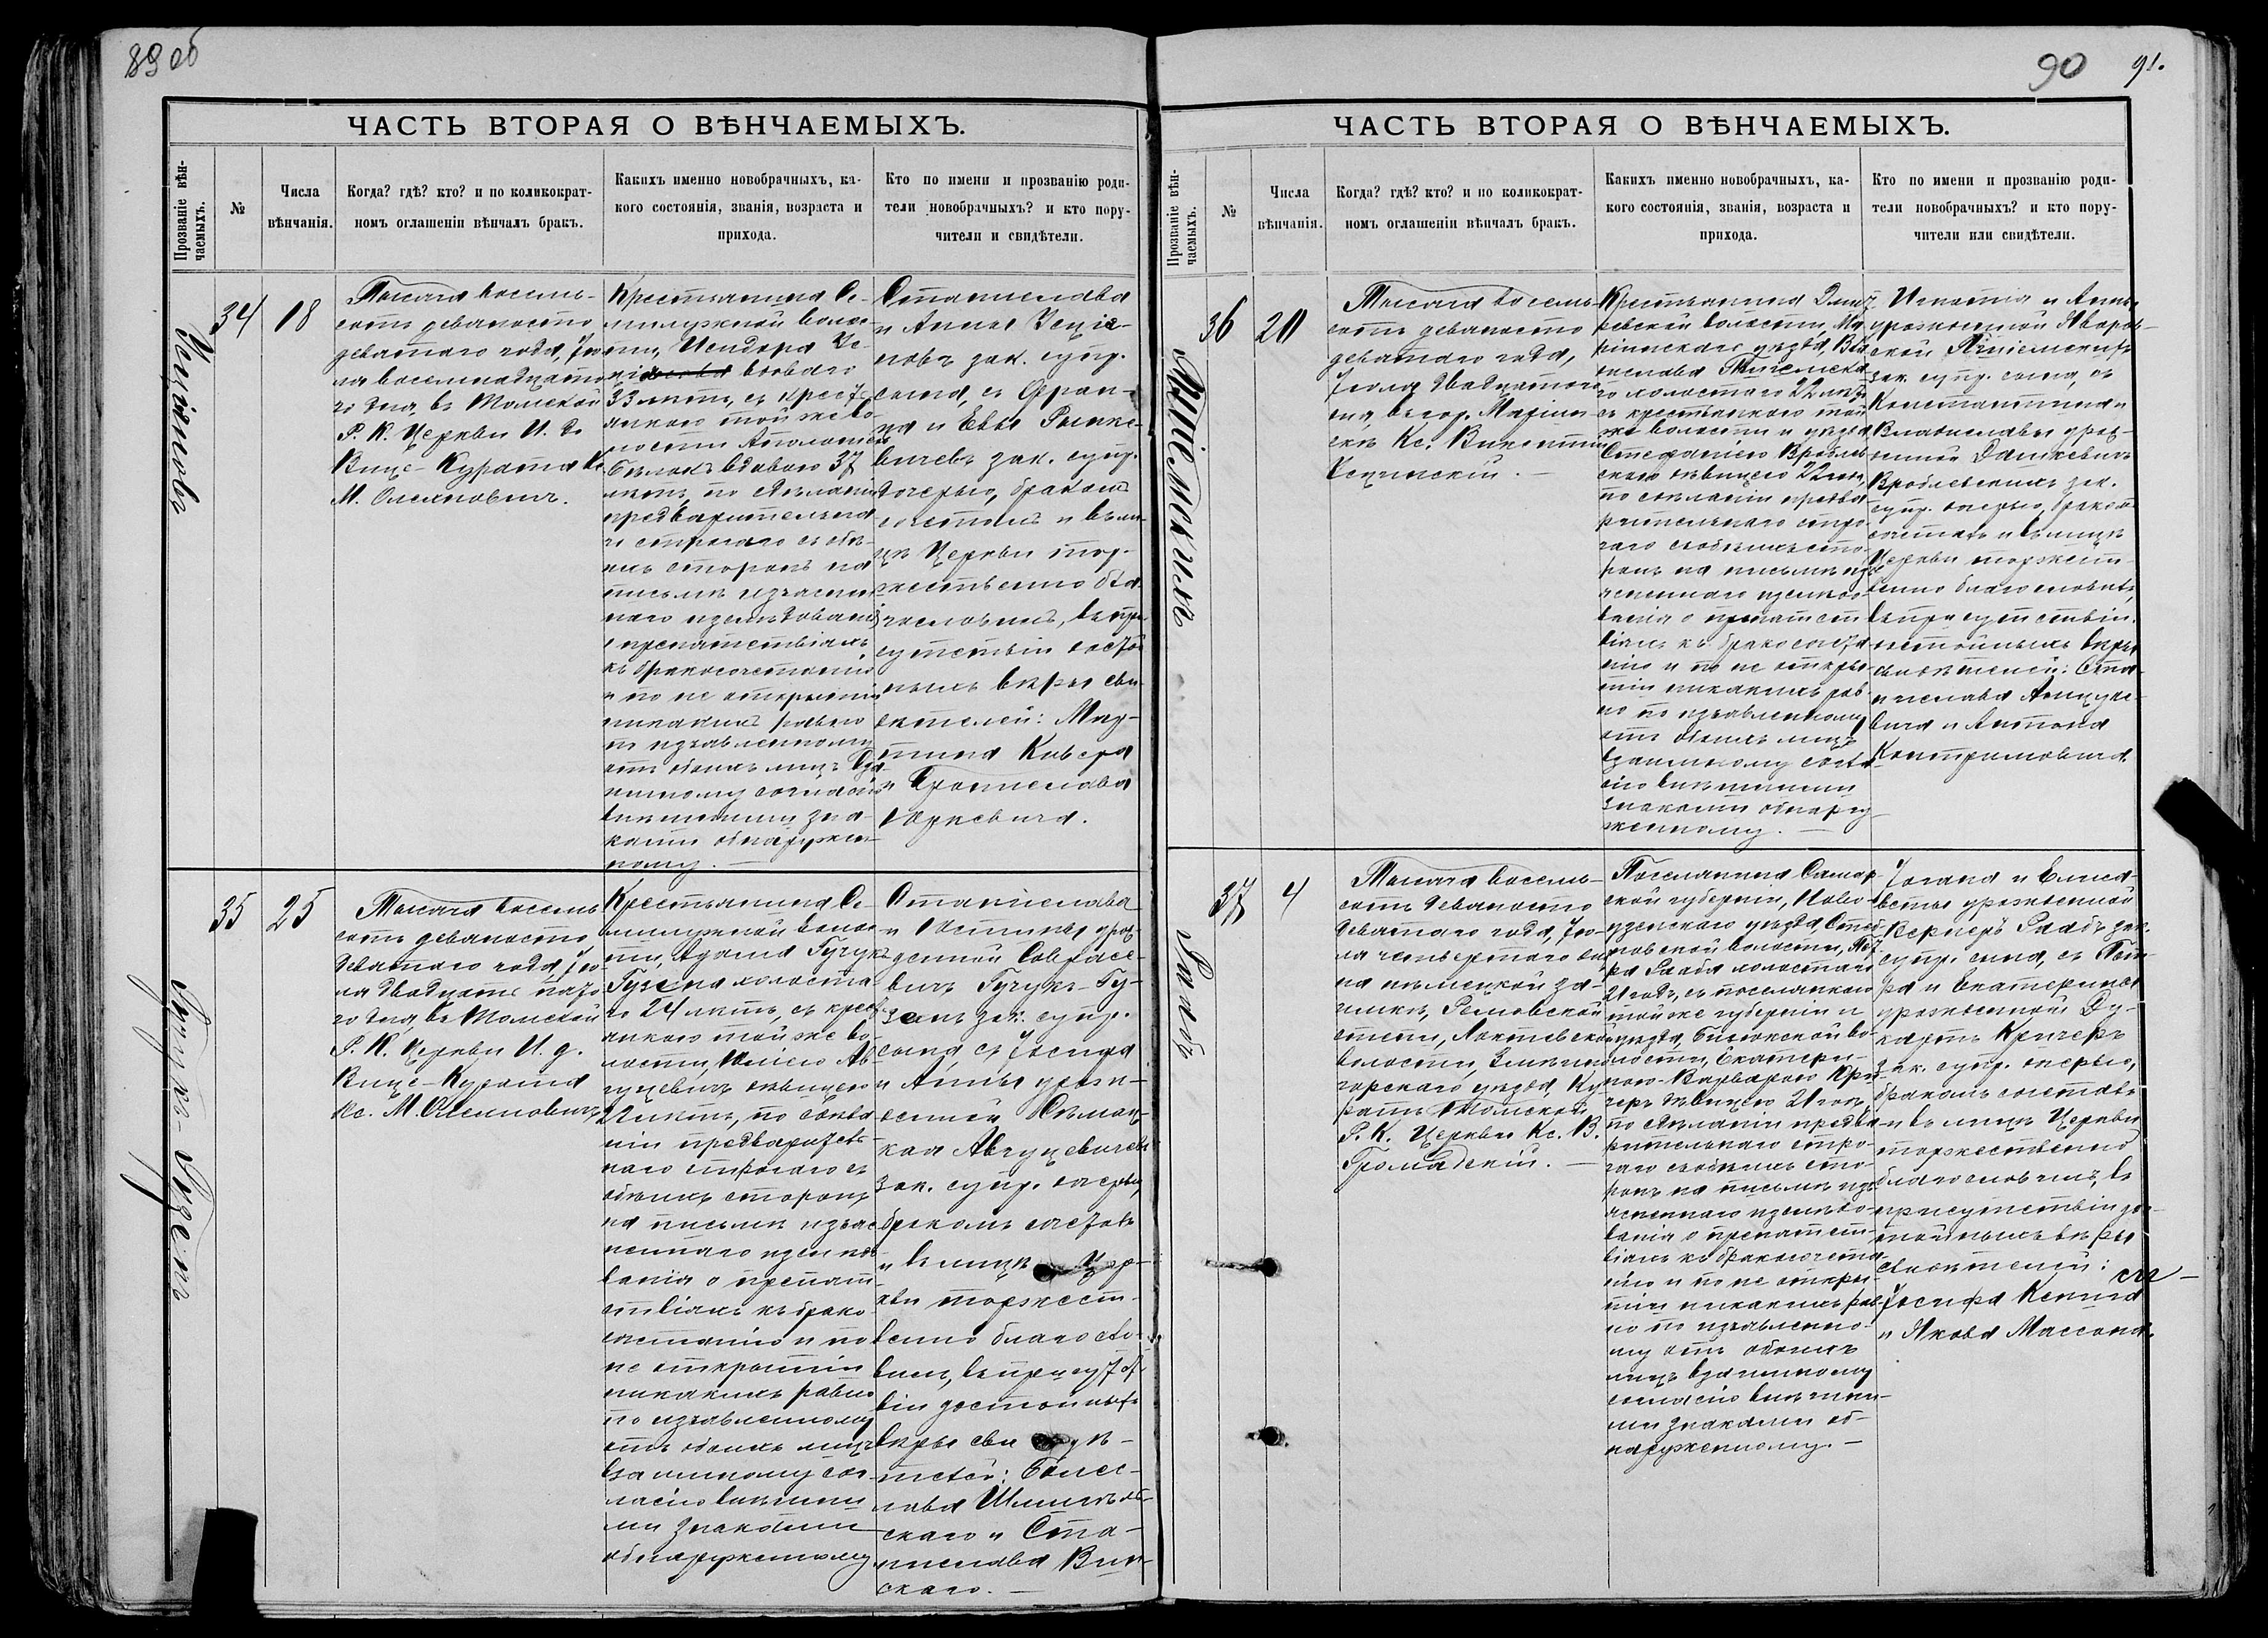 89 об
ЧАСТЬ ВТОРАЯ О ВѢНЧАЕМЫХЪ.
Прозваніе вѣн-
чаемыхъ.
№
Числа
вѣнчанія.
Когда? гдѣ? кто? и по коликократ-
номъ оглашеніи вѣнчалъ бракъ.
Какихъ именно новобрачныхъ, ка-
кого состоянія, званія, возраста и
прихода.
Кто по имени и прозванію роди-
тели новобрачныхъ? и кто пору-
чители и свидѣтели.
34
18
Тысяча восемь-
сотъ девяносто
девятаго года, Iю
ля восемнадцата
го дня, въ Томской
Р. К. Церкви И. д.
Вице-Курата Кс.
М. Олехновичъ.
Крестьянина Се-
милужной волос-
ти, Исидора
вдоваго
33 лѣтъ, съ крест
янкою той же во-
лости
вдовою 37
лѣтъ, по сдѣланіи
предварительна
го строгаго съ обѣ-
ихъ сторонъ на
письмѣ изъяснен
наго изслѣдованія
о препятствіяхъ
къ бракосочетанію
и по не открытіи
никакихъ равно
по изъявленному
отъ обоихъ лицъ вза
имному согласію
внѣшними зна-
ками обнаружен-
ному. —
Станислава
и Анны
новъ зак. супр.
сына, съ Фран-
ца и Евы Рынке-
вичевъ зак. супр.
дочерью, бракомъ
сочеталъ и въ ли-
цѣ Церкви тор-
жественно бла-
гословилъ, въ при
сутствіи достой
ныхъ вѣры сви-
дѣтелей: Мар-
тина
и Бронислава
Юркевича.
35
25
Гучукъ-Гузенъ
Тысяча восемь
сотъ девяносто
девятаго года, Iю-
ля двадцать пята
го дня, въ Томской
Р. К. Церкви И. д.
Вице-Курата
Кс. М. Олехновичъ,
Крестьянина Се-
милужной волос-
ти, Адама Гучукъ
Гузена холоста-
го 24 лѣтъ, съ крест
янкою той же во-
лости, Юліею Ав-
гуцевичъ дѣвицею
22 лѣтъ, по сдѣла-
ніи предварител-
наго строгаго съ
обѣихъ сторонъ
на письмѣ изъяс
неннаго изслѣдо-
ванія о препят-
ствіяхъ къ брако-
сочетанію и по
не открытіи
никакихъ равно
по изъявленному
отъ обоихъ лицъ
взаимному сог-
ласію внѣшни
ми знаками
обнаруженному.
Станислава
и Юстины урож
денной
вичъ Гучукъ-Гу-
зенъ зак. супр.
сына, съ Iосифа
и Анны урож-
денной
Авгуцевичевъ
зак. супр. дочерью,
бракомъ сочеталъ
и въ лицѣ Цер-
кви торжест-
венно благосло-
вилъ, въ присутст-
віи достойныхъ
вѣры свидѣ-
телей: Болес-
лава
скаго и Ста-
нислава
скаго. —
90
91.
ЧАСТЬ ВТОРАЯ О ВѢНЧАЕМЫХЪ.
Прозваніе вѣн-
чаемыхъ.
№
Числа
вѣнчанія.
Когда? гдѣ? кто? и по коликократ-
номъ оглашеніи вѣнчалъ бракъ.
Какихъ именно новобрачныхъ, ка-
кого состоянія, званія, возраста и
прихода.
Кто по имени и прозванію роди-
тели новобрачныхъ? и кто пору-
чители или свидѣтели.
36
20
Тысяча восемь
сотъ девяносто
девятаго года,
Iюля двадцатаго
дня, въ гор. Маріин-
скѣ Кс. Викентій
. —
Крестьянина
ской волости, Ма
ріинскаго уѣзда, Вла
дислава
го холостаго 22 лѣтъ
съ крестьянкою той
же волости и уѣзда
Стефаніею Вроблев-
скою дѣвицею 22 лѣтъ,
по сдѣланіи предва
рительнаго стро-
гаго съ обѣихъ сто-
ронъ на письмѣ изъ
ясненнаго изслѣдо-
ванія о препятст
віяхъ къ бракосочета
нію и по не откры-
тіи никакихъ рав
но по изъявленному
отъ обоихъ лицъ
взаимному согла-
сію внѣшними
знаками обнару
женному. —
Игнатія и Анны
урожденной Явор-
ской
зак. супр. сына, съ
Константина и
Владиславы урож
денной Дашкевичъ
Вроблевскихъ зак.
супр. дочерью, бракомъ
сочеталъ и въ лицѣ
Церкви торжест-
венно благословилъ,
въ присутствіи
достойныхъ вѣры
свидѣтелей: Ста-
нислава
вича и Антона
Контримовича
37
4
Раабъ
Тысяча восемь-
сотъ девяносто
девятаго года, Iю-
ля четвертаго дня
на нѣмецкой за-
имкѣ,
степи, Локтевской
волости, Змѣино
горскаго уѣзда, Ку-
ратъ Томской
Р. К. Церкви Кс. В.
Громадскій. —
Поселянина Самар
ской губерніи, Ново-
узенскаго уѣзда,
новской волости, Пет
ра Рааба холостаго
21 года, съ поселянкою
той же губерніи и
уѣзда, во-
лости, Екатери-
ною-Варварою Кри-
черъ дѣвицею 21 года,
по сдѣланіи предва
рительнаго стро-
гаго съ обѣихъ сто-
ронъ на письмѣ изъ
ясненнаго изслѣдо-
ванія о препятст-
віяхъ къ бракосочета
нію и по не откры-
тіи никакихъ рав-
но по изъявленно-
му отъ обоихъ
лицъ взаимному
согласію внѣшни-
ми знаками об-
наруженному. —
Iогана и Елиса-
веты урожденной
Кернеръ Раабъ зак.
супр. сына, съ Пет-
ра и Екатерины
урожденной Ду-
картъ Кричеръ
зак. супр. дочерью,
бракомъ сочеталъ
и въ лицѣ Церкви
торжественно
благословилъ, въ
присутствіи дос-
тойныхъ вѣры
свидѣтелей:
Iосифа
и Якова Массона.